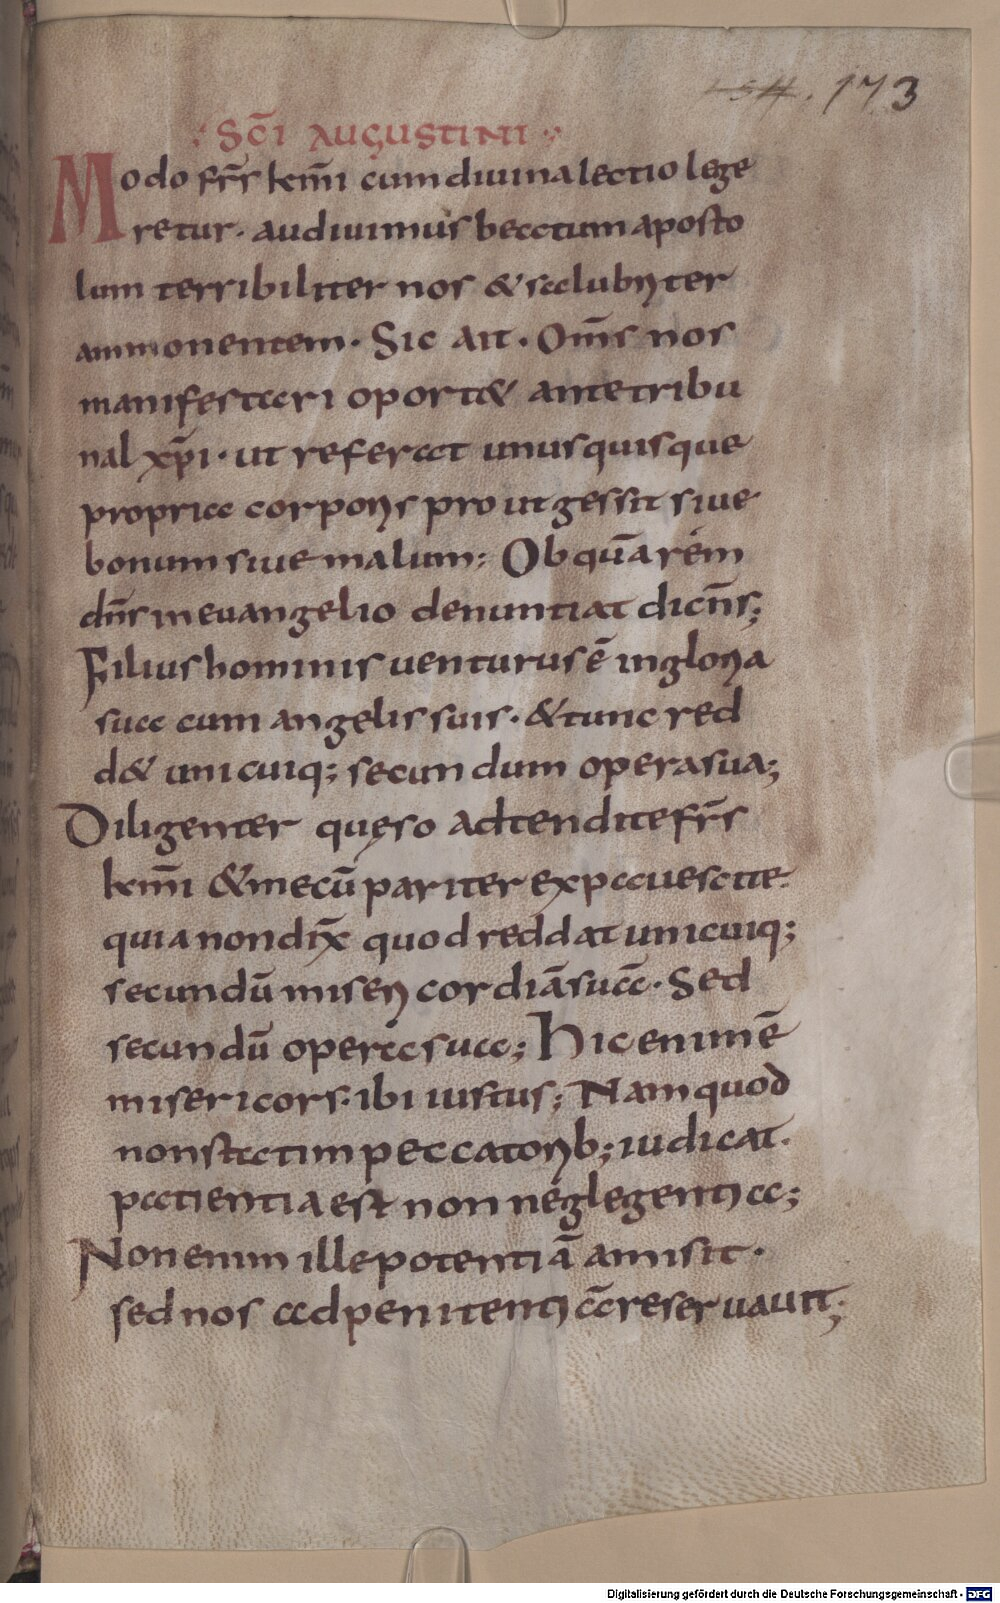 173
SCI AUGUSTINI
Modo frs̄ km̄i cum diuina lectio lege
retur· audiuimus beatum aposto
lum terribiliter nos & salubriter
ammonentem· Sic ait· Om̄s nos
manifestari oport& ante tribu
nal xp̄i· ut referat unusquisque
propria corporis pro ut gessit siue
bonum siue malum; Ob quā rem
dn̄s in euangelio denuntiat dicn̄s;
Filius hominis uenturus ē in gloria
sua cum angelis suis· & tunc red
d& unicuiq; secundum opera sua;
Diligenter quęso adtendite frs̄
km̄i & mecū pariter expauescite·
quia non dix̄ quod reddat unicuiq;
secundū misericordiā suā· Sed
secundū opera sua; Hic enim ē
misericors· ibi iustus; Nam quod
non statim peccatorib; iudicat·
patientia est non neglegentia;
Non enim ille potentiā amisit·
sed nos ad penitentiā reseruauit;
Digitalisierung gefördert durch die Deutsche Forschungsgemeinschaft - DFG